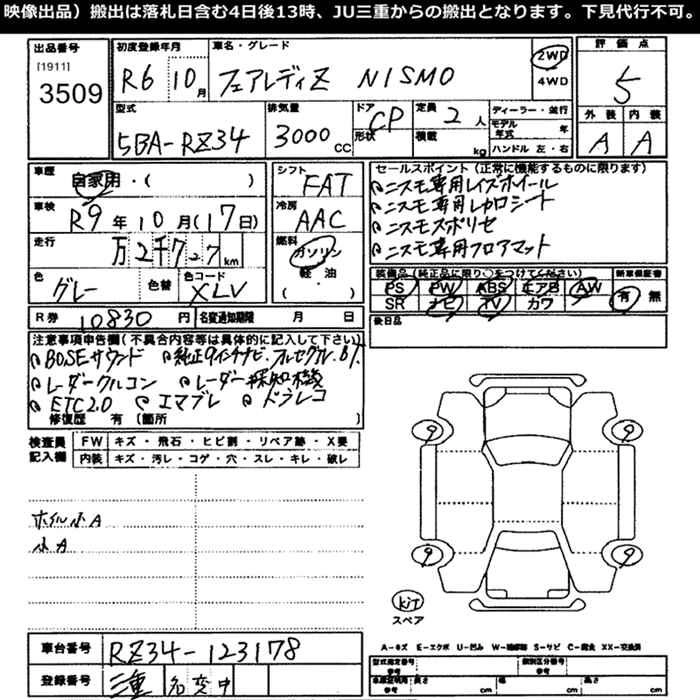 映像出品）搬出は落札日含む4日後13時、JU三重からの搬出となります。下見代行不可。
出品番号
[1911]
3509
初度登録年月
R6 10月
車名・グレード
フェアレディZ NISMO
2WD
4WD
評価点
5
外装 内装
A A
型式
5BA-RZ34
排気量
3000 CC
ドア形状
CP
定員 2 人
積載 kg
ディーラー・並行
モデル年式 年
ハンドル 左・右
車歴
自家用・( )
車検
R9年10月(17日)
走行
万2千727km
色
グレー
色替
色コード
XLV
シフト
FAT
冷房
AAC
燃料
ガソリン
軽・油
・( )
セールスポイント(正常に機能するものに限ります)
ニスモ専用レイズホイール
ニスモ専用レカロシート
ニスモスポリセ
ニスモ専用フロアマット
装備品(純正品に限り○をつけてください)
PS PW ABS エアB AW
SR ナビ TV カワ
新車保証書
有 無
後日品
R券 10830円
名変通知期限 月 日
注意事項申告欄(不具合内容等は具体的に記入して下さい)
BOSEサウンド 純正9インチナビ.フルセグTV.Bカメ
レーダークルコン レーダー探知機
ETC2.0 エマブレ ドラレコ
修復歴 有 (箇所 )
検査員記入欄
FW キズ・飛石・ヒビ割・リペア跡・X要
内装 キズ・汚レ・コゲ・穴・スレ・キレ・破レ
ホイル小A
小A
9 9
9 9
kit
スペア
A-キズ E-エクボ U-凹み W-補修跡 S-サビ C-腐食 XX-交換済
車台番号 RZ34-123178
登録番号 三重 名変中
型式指定番号 参考
類別区分番号 参考
車庫証明用 参考 長さ cm 幅 cm 高さ cm